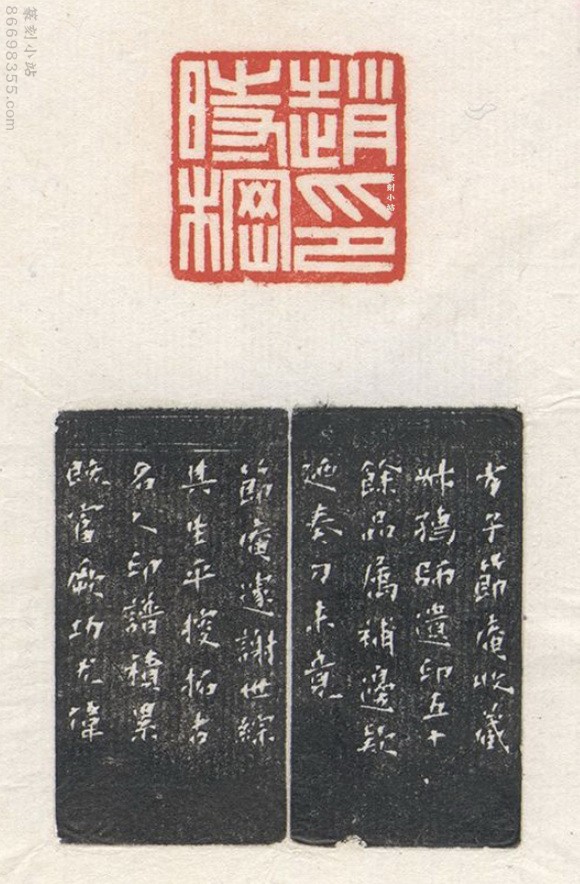 篆刻小站
86698355.com
趙印
時棡
篆刻小站
方子節庵收藏
叔孺師遺印五十
餘品屬補邊款
奏刀未竟
節庵遽謝世綜
其生平拓古
名人印譜積累
既富厥功尤偉